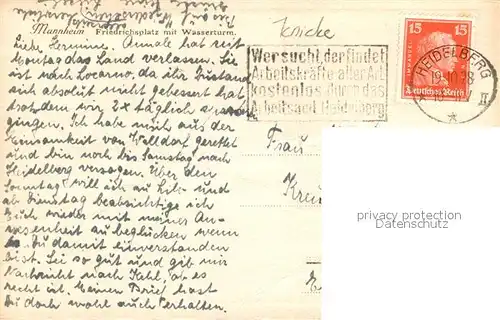 Mannheim Friedrichsplatz mit Wasserturm.
Liebe Hermine. Amalie hat seit
Montag das Land verlassen. Sie
ist nach Locarno, da ihr Zustand
sich absolut nicht gebessert hat
trotzdem wir 2x täglich
gingen. Ich habe mich aus der
Einsamkeit von Walldorf gerettet
und bin noch bis Samstag nach
Heidelberg verzogen. Über den
Sonntag will ich zu und
ab Dienstag beabsichtige ich
Euch wieder mit meiner An-
wesenheit zu beglücken wenn
Du damit einverstanden
bist. Sei so gut und gib mir
Nachricht nach Kahl, ob es
recht ist. Meinen Brief hast
Du doch wohl auch erhalten.
Knicke
Wer sucht, der findet
Arbeitskräfte aller Art
kostenlos durch das
Arbeitsamt Heidelberg
15 15
IMMANUEL
Deutsches Reich
HEIDELBERG
19.10.28
II
Frau
privacy protection
Datenschutz